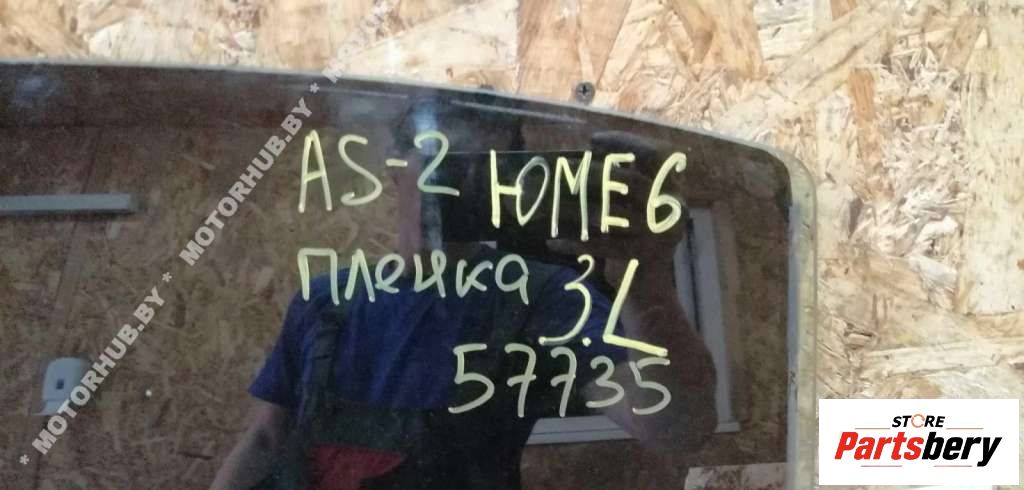 AS-2 ЮМЕ6
пленка 3.L
57735
* MOTORHUB.BY * MOTORHUB.BY * M
STORE
Partsbery